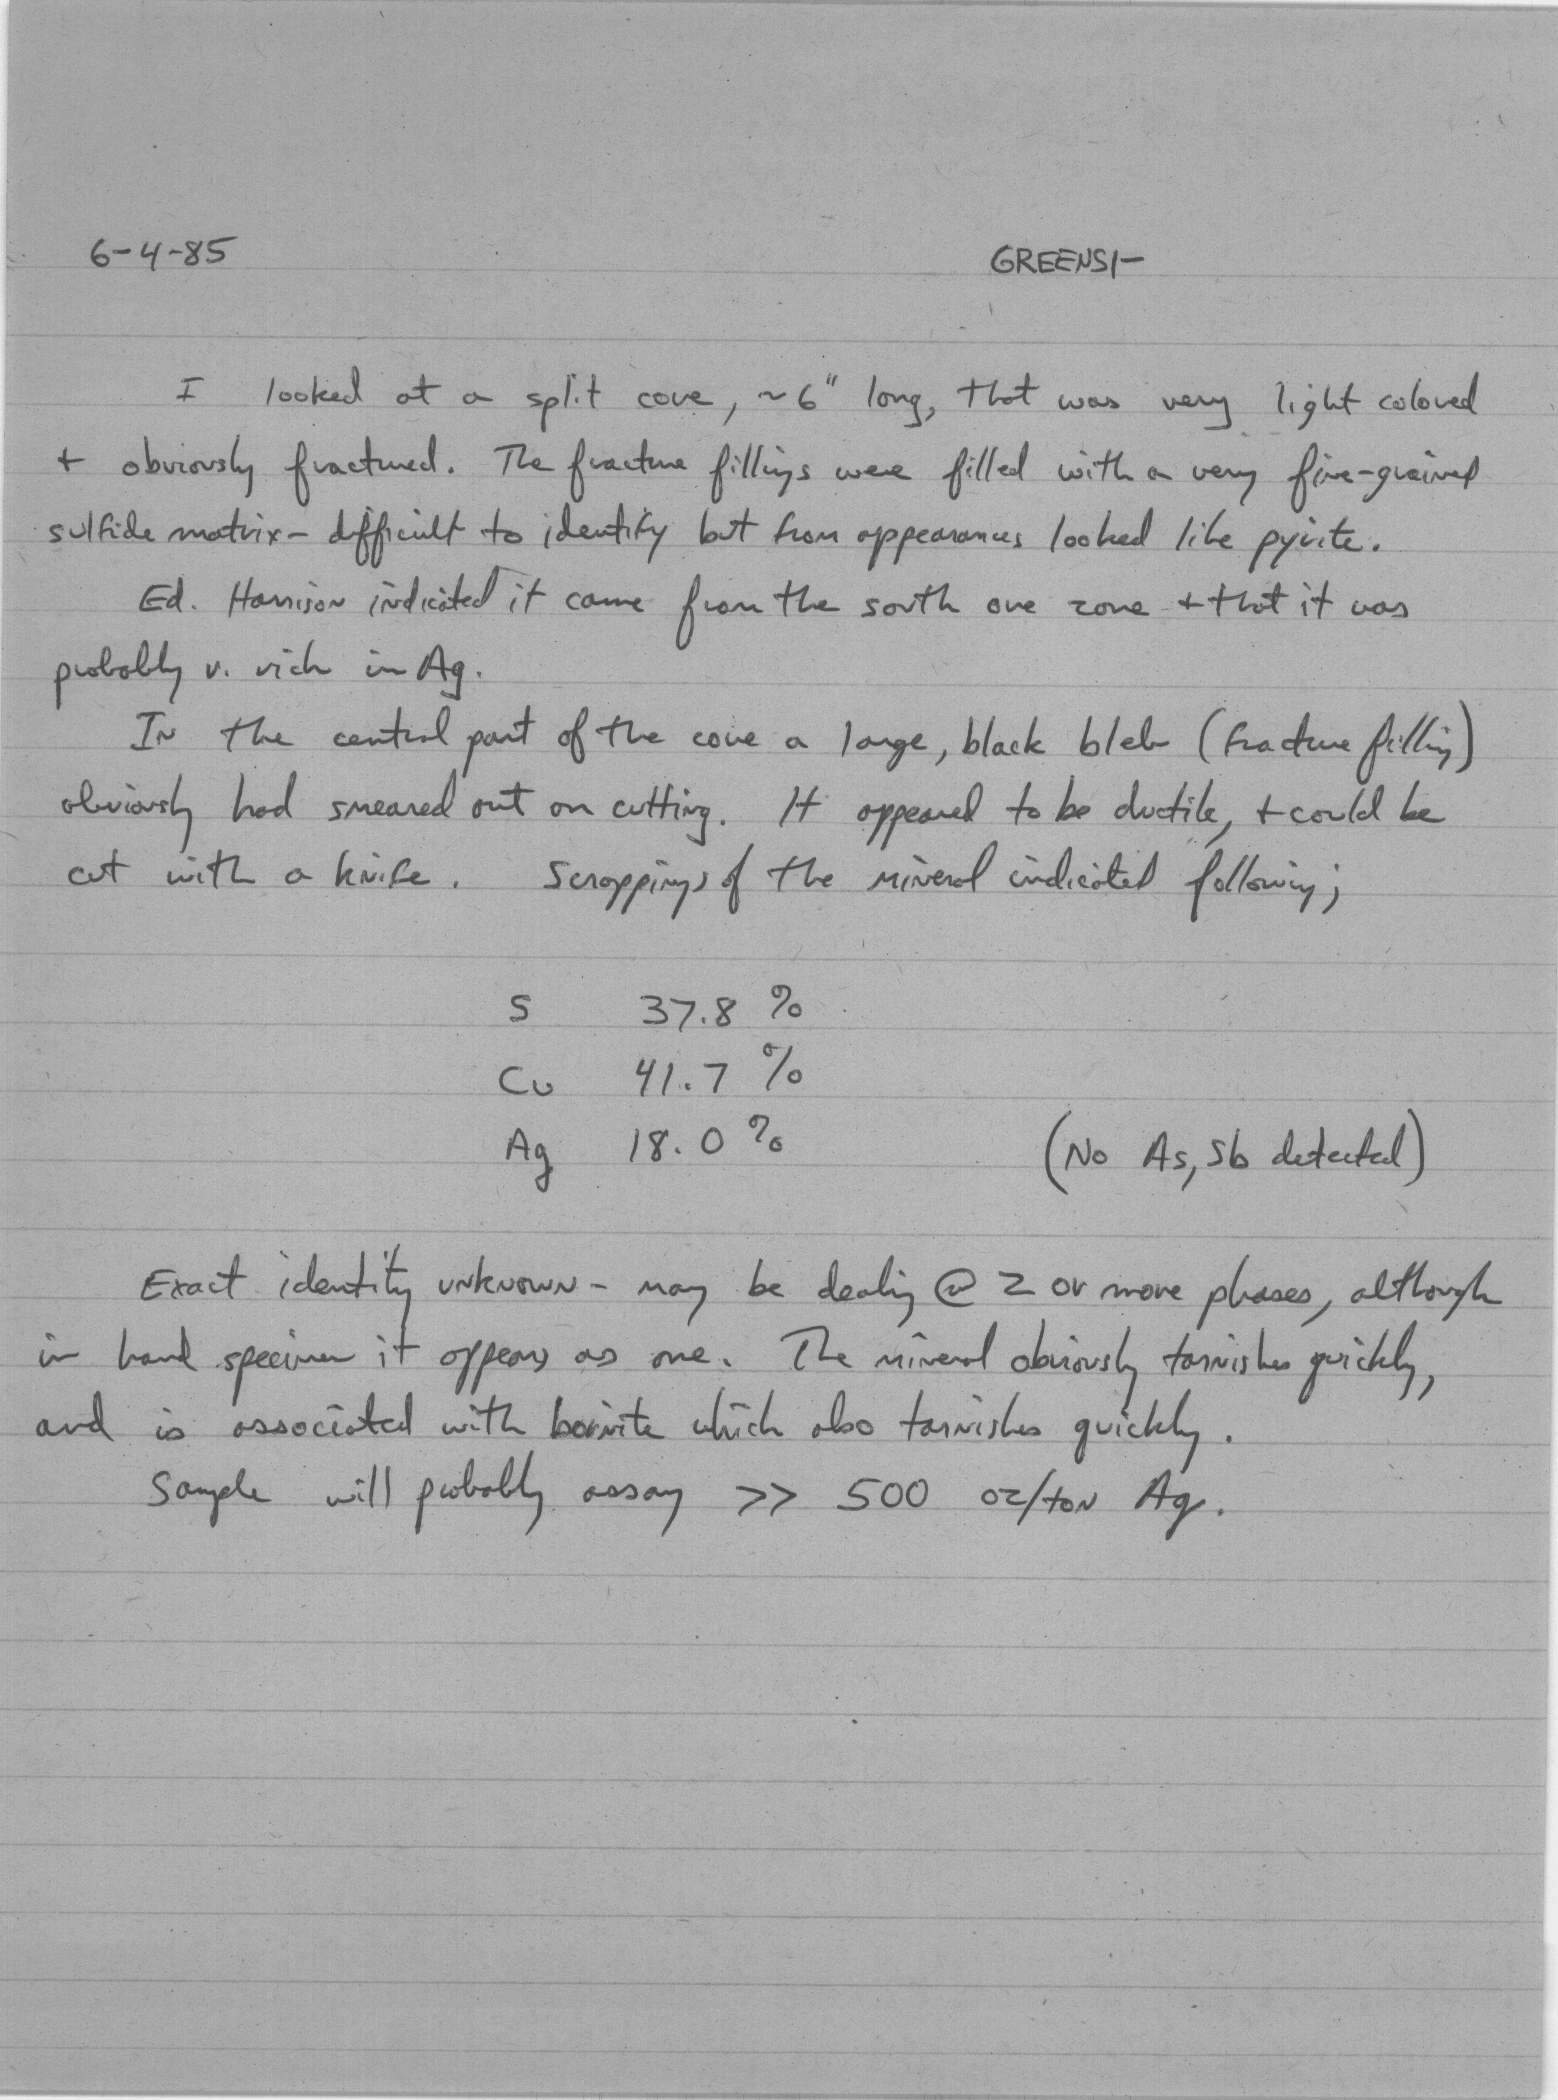 6-4-85 GREENS1-
I looked at a split core, ~6" long, that was very light colored
+ obviously fractured. The fracture fillings were filled with a very fine-grained
sulfide matrix - difficult to identify but from appearances looked like pyrite.
Ed. Harrison indicated it came from the south ore zone + that it was
probably v. rich in Ag.
In the central part of the core a large, black bleb (fracture filling)
obviously had smeared out on cutting. It appeared to be ductile, + could be
cut with a knife. Scrappings of the mineral indicated following;
S 37.8 %
Cu 41.7 %
Ag 18.0 % (No As, Sb detected)
Exact identity unknown - may be dealing @ 2 or more phases, although
in hand specimen it appears as one. The mineral obviously tarnishes quickly,
and is associated with bornite which also tarnishes quickly.
Sample will probably assay >> 500 oz/ton Ag.